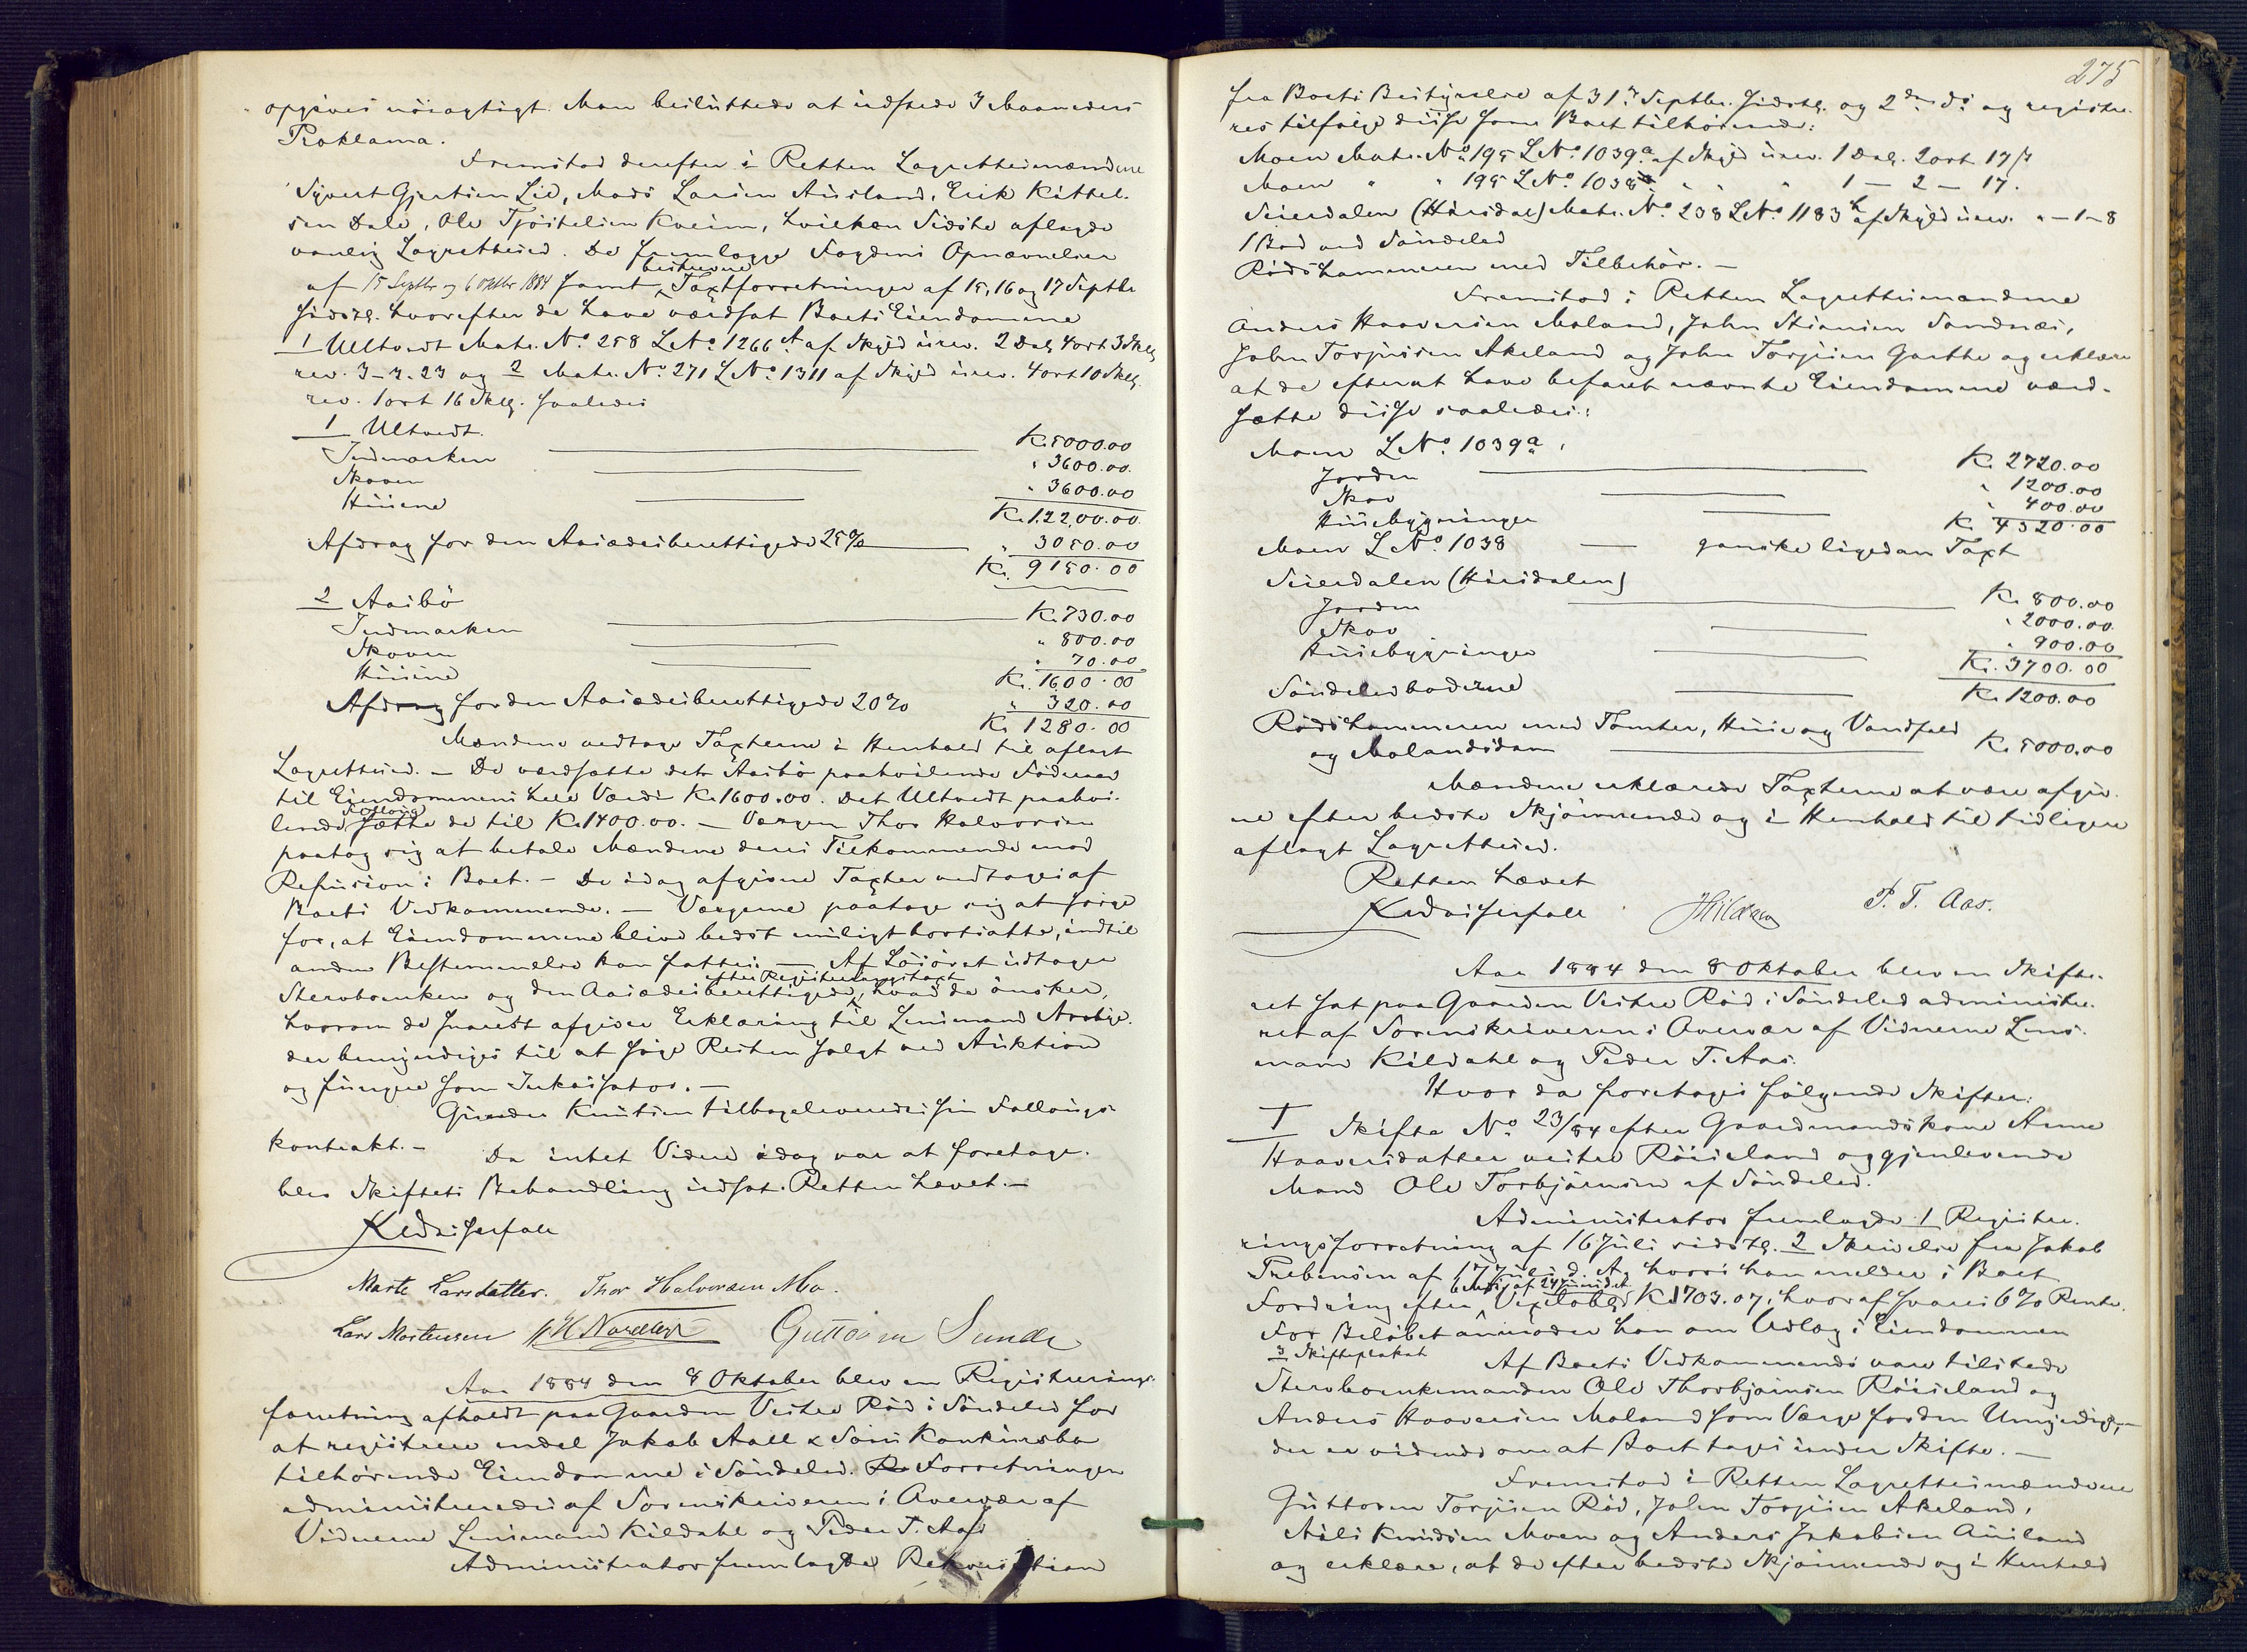 opgives nöiagtigt. Man besluttede at udstede 3 Maaneders
Proklama.
Fremstod derefter i Retten Lagrettesmændene
Syvert Gjertsen Lid, Mads Larsen Ausland, Erik Kittel-
sen Dale, Ole Tjöstelsen Kveim, hvilken Sidste aflagde
vanlig Lagrettesed. De fremlagge Fogdens Opnævnelser
af 15 Septbr og 6 Oktbr 1884 samt beskrevne Taxtforretninger af 15, 16 og 17 Septbr
sidstl. hvorefter de have værdsat Boets Eiendomme
1 Ultvedt Matr. No 258 LNo 1266 a af Skyld urev. 2 Dal. 4 ort 3 Skll
rev. 3-3-23 og 2 Matr. No 271 LNo 1311 af Skyld urev. 4 ort 10 Skll.
rev. 1 ort 16 Skll. saaledes
1 Ultvedt.
Indmarken K. 5000.00
Skoven " 3600.00
Husene " 3600.00
K. 12200.00
Afdrag for den Aasædesberettigede 25% " 3050.00
Kr. 9150.00
2 Aasbö
Indmarken K. 730.00
Skoven " 800.00
Husene " 70.00
Kr. 1600.00
Afdrag for den Aasædesberettigede 20% " 320.00
Kr 1280.00
Mændene vedtage Taxterne i Henhold til aflagt
Lagrettesed. — De værdsatte det Aasbö paahvilende Föderaad
til Eiendommens hele Værdi K. 1600.00. Det Ultvedt paahvi-
lende Follaug sætte de til K. 1400.00. — Værgen Thor Halvorsen
paatog sig at betale Mændene deres Tilkommende mod
Refusion i Boet. — De idag afgivne Taxter vedtages af
Boets Vedkommende. — Værgerne paatage sig at sörge
for, at Eiendommene blive bedst muligt bortsatte, indtil
anden Bestemmelse kan fattes. — Af Lösöret udtager
Stervboenken og den Aasædesberettigede efter Registreringstaxt, hvad de önsker,
hvorom de snarest afgiver Erklæring til Lensmand
der bemyndiges til at söge Resten solgt ved Auktion
og fungere som Inkassator. —
Gunder Knutsen tilbageleveredes sin Follaugs-
kontrakt. — Da intet Videre idag var at foretage.
blev Skiftets Behandling udsat. Retten hævet. —
Marte Larsdatter. Thor Halvorsen Mo.
Lars Mortensen Guttorm Sunde
Aar 1884 den 8 Oktober blev en Registrerings-
forretning afholdt paa Gaarden Vestre Röd i Söndeled for
at registrere endel Jakob Aall & Söns Konkursbo
tilhörende Eiendomme i Söndeled. Forretningen
administreredes af Sorenskriveren i Overvær af
Vidnerne Lensmand Kildahl og Peder T. Aas
Administrator fremlagde Rekvisition
275
fra Boets Bestyrelse af 31te Septbr. sidstl. og 2den ds og registre-
res tilfölge disse som Boet tilhörende:
Moen Matr. No 195 LNo. 1039a af Skyld urev. 1 Dal. 2 ort 17 ß
Moen " " 195 LNo. 1038 " " " 1 — 2 — 17.
Seierdalen (Husdal) Matr. No. 238 LNo 1183 b af Skyld urev. " — 1 — 8
1 Bod ved Söndeled
Rödshammeren med Tilbehör. —
Fremstod i Retten Lagrettesmændene
Anders Haaversen Moland, John Stiansen Sandnæs,
John Torjusen Akeland og John Torjusen Garthe og erklære
at de efterat have befaret nævnte Eiendomme værd-
sætte disse saaledes:
Moen LNo 1039a.
Jorden K. 2720.00
Skov " 1200.00
Husebygninger " 400.00
K. 4320.00
Moen LNo. 1038 — ganske ligedan Taxt
Seierdalen (Husdalen)
Jorden K. 800.00
Skov " 2000.00
Husebygninger " 900.00
Kr. 3700.00
Söndeledboderne K. 1200.00
Rödshammeren med Tomter, Huse og Vandfald
og Molandsdam K. 5000.00
Mændene erklærede Taxterne at være afgiv-
ne efter bedste Skjönnende og i Henhold til tidligere
aflagt Lagrettesed.
Retten hævet
Kildahl P. T. Aas.
Aar 1884 den 8 Oktober blev en Skifte-
ret sat paa Gaarden Vestre Röd i Söndeled administre-
ret af Sorenskriveren i Overvær af Vidnerne Lens-
mand Kildahl og Peder T. Aas.
Hvor da foretages fölgende Skifter:
I Skifte No 23/84 efter Gaardmandskone Anne
Haaversdatter vestre Röiseland og gjenlevende
Mand Ole Torbjörnsen af Söndeled.
Administrator fremlagde 1 Registre-
ringsforretning af 16 Juli sidstl. 2 Skrivelse fra Jakob
Trebensen af 17 Juli d. A. hvori han melder i Boet
Fordring efter Vexelobl. K. 1703.07, hvoraf svares 6% Rente.
For Belöbet anmoder han om Udlæg i Eiendommen
3 Skifteplakat Af Boets Vedkommende vare tilstede
Stervboenkemanden Ole Thorbjörnsen Röiseland og
Anders Haaversen Moland som Værge for den Umyndige,
der er vidende om at Boet tages under Skifte. —
Fremstod i Retten Lagrettesmændene
Guttorm Torjusen Röd, John Torjusen Akeland,
Nils Knudsen Moen og Anders Jakobsen Ausland
og erklære, at de efter bedste Skjönnende og i Henhold